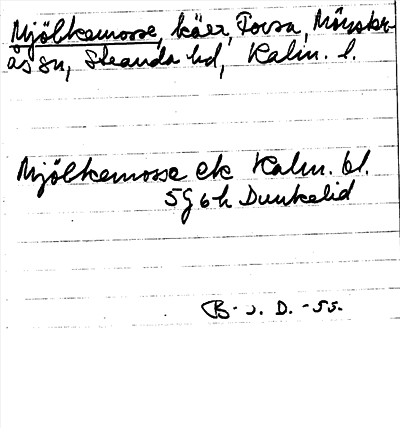 Mjölkemosse, kärr, Torsa, Mönster-
ås sn, Stranda hd, Kalm. l.
Mjölkemosse ek Kalm. bl.
5G 6h Dunkelid
B. J. D. -55.